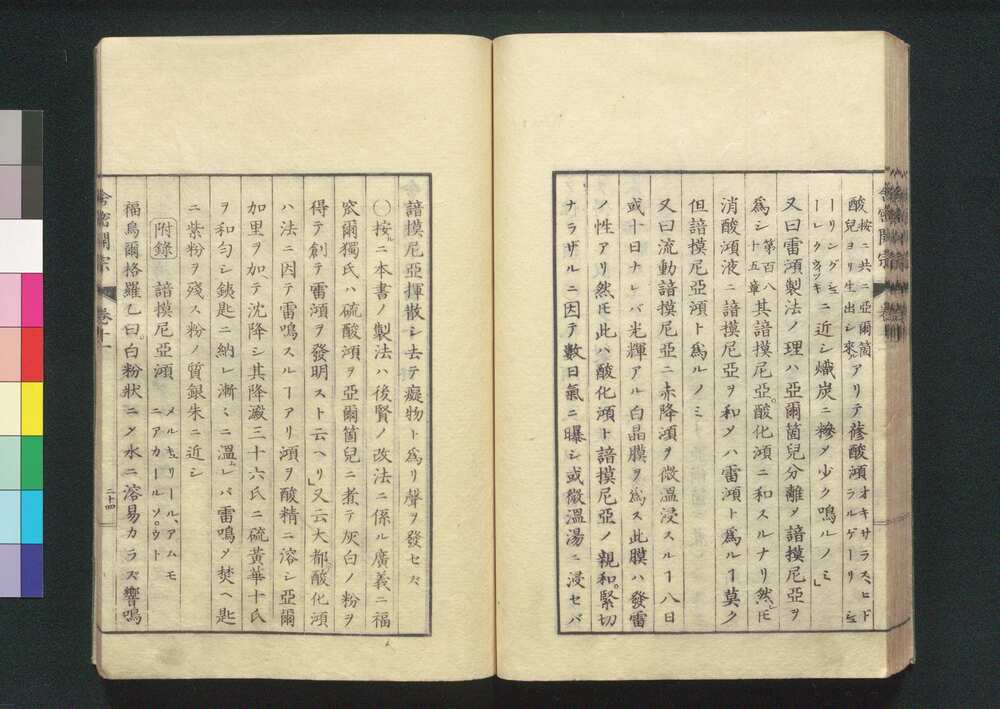 酸按ニ共ニ亞爾箇兒ヨリ生出シ來アリテ蓚酸澒オキサラス、ヒドラルゲーリ
ーリングニ近シ熾炭ニ糝メ少ク鳴ルノミ」
又曰雷澒製法ノ理ハ亞爾箇兒分離メ諳摸尼亞ヲ
爲シ第百八十五章其諳摸尼亞。酸化澒ニ和スルナリ然𪜈
消酸澒液ニ諳摸尼亞ヲ和メハ雷澒ト爲ルヿ莫ク
但諳摸尼亞澒ト爲ルノミ
又曰流動諳摸尼亞ニ赤降澒ヲ微温浸スルヿ八日
或十日ナレバ光輝アル白晶膜ヲ爲ス此膜ハ發雷
ノ性アリ然𪜈此ハ酸化澒ト諳摸尼亞ノ親和。緊切
ナラザルニ因テ數日氣ニ曝シ或微温湯ニ浸セバ
諳摸尼亞揮散シ去テ癡物ト爲リ聲ヲ發セズ
◯按ルニ本書ノ製法ハ後賢ノ改法ニ係ル廣義ニ福
烕爾獨氏ハ硫酸澒ヲ亞爾箇兒ニ煮テ灰白ノ粉ヲ
得テ創テ雷澒ヲ發明スト云ヘリ」又云大都酸化澒
ハ法ニ因テ雷鳴スルヿアリ澒ヲ酸精ニ溶シ亞爾
加里ヲ加ヘテ沈降シ其降澱三十六氏ニ硫黄華十氏
ヲ和匀シ銕匙ニ納レ漸々ニ温レバ雷鳴メ焚ヘ匙
ニ紫粉ヲ殘ス粉ノ質銀朱ニ近シ
附錄 諳摸尼亞澒 メルキュリール、アムモニアカールソ。ウト
福烏爾格羅乙曰。白粉狀ニメ水ニ溶易カラズ響鳴
舎密開宗 卷十一 二十四